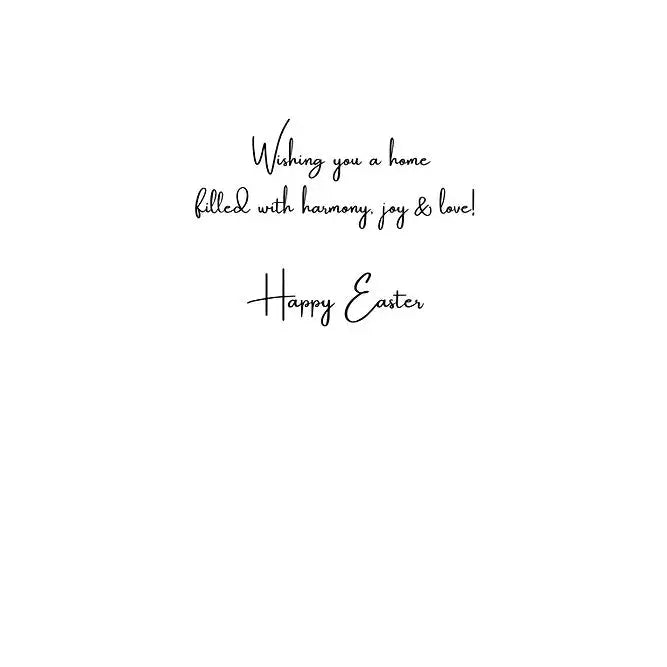 Wishing you a home
filled with harmony, joy & love!
Happy Easter